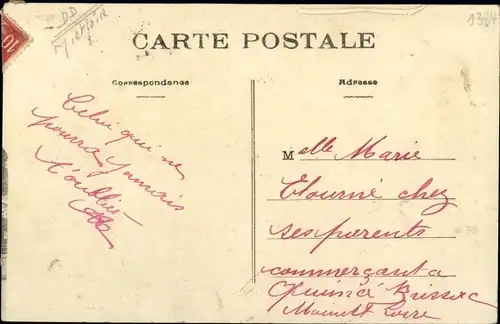 DD
1324
10
CARTE POSTALE
Correspondance
Adresse
Celui qui ne
pourra jamais
t'oublier
Melle Marie
Tourné chez
ses parents
commerçant a
Quincé Brissac
Maine et Loire